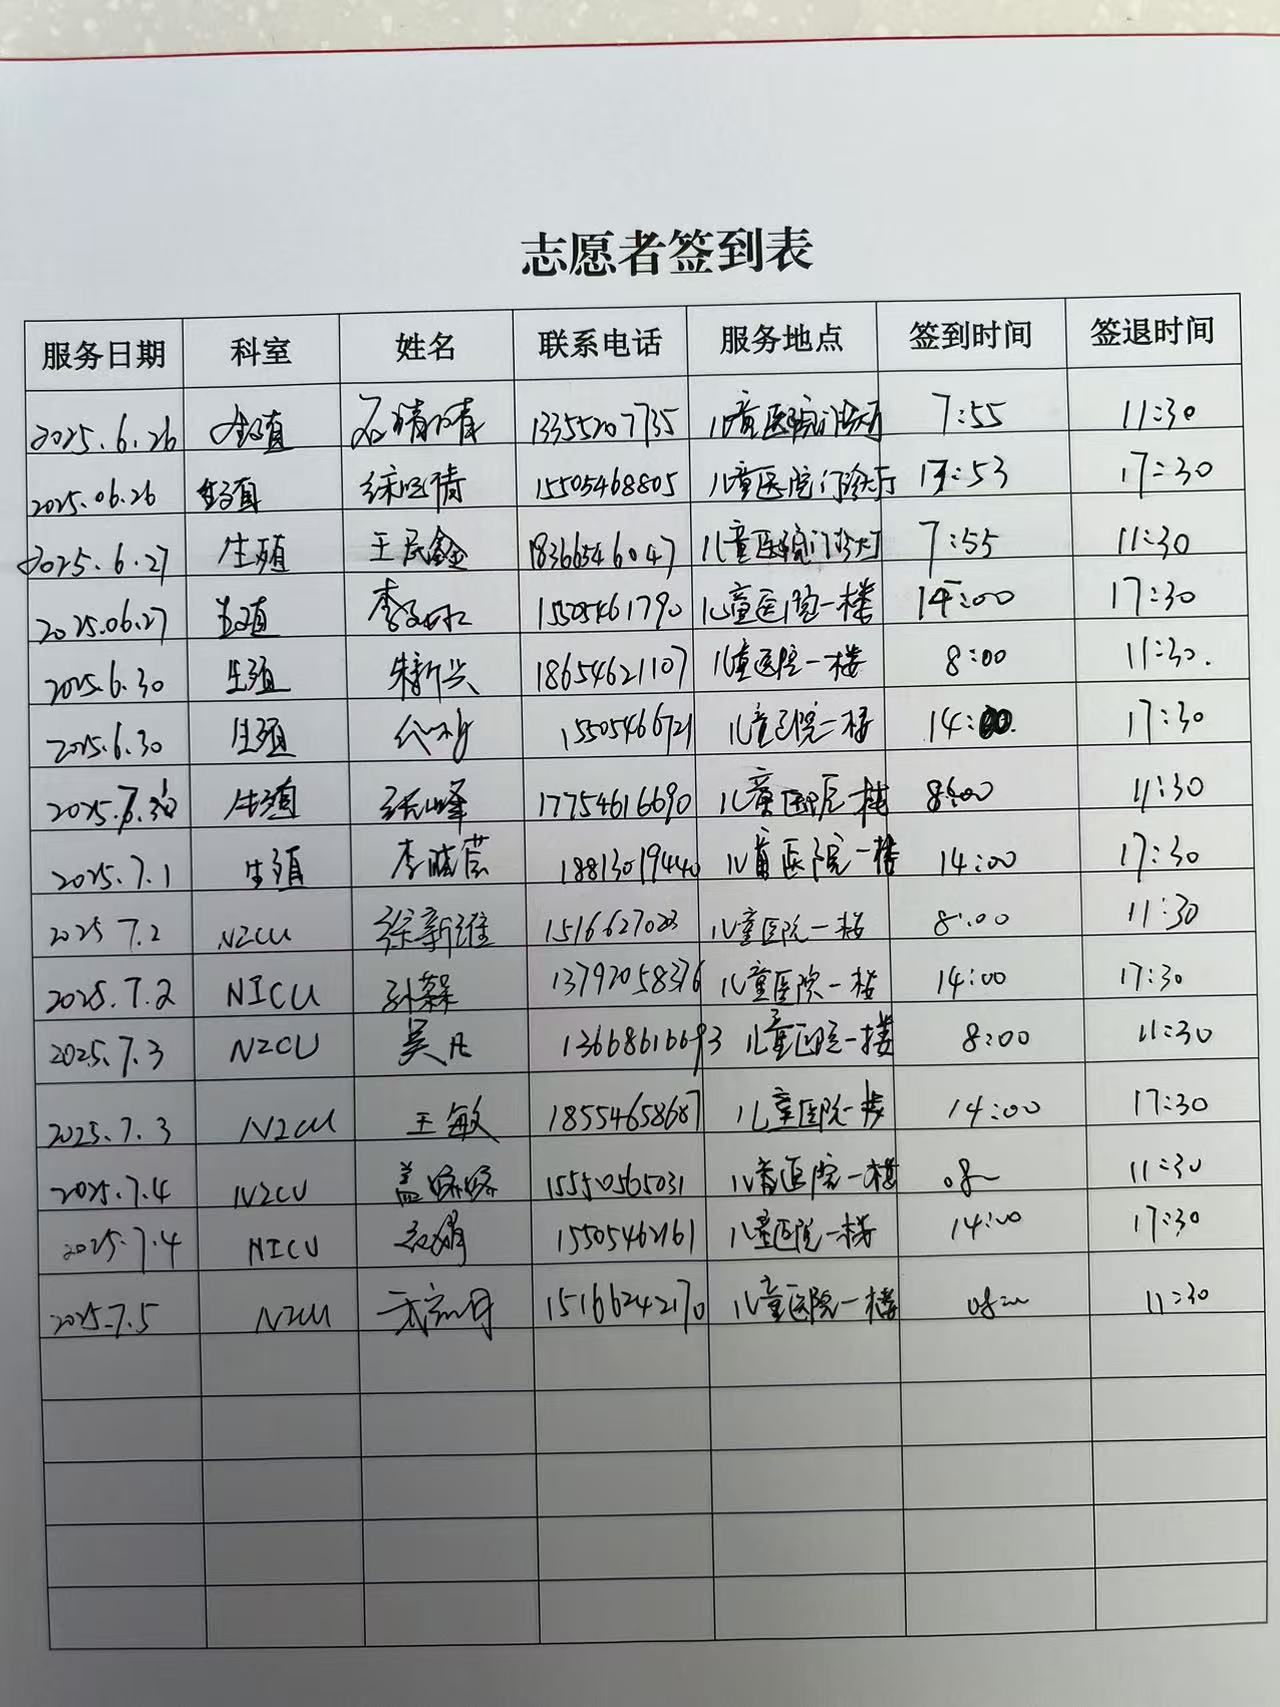 志愿者签到表
服务日期 科室 姓名 联系电话 服务地点 签到时间 签退时间
2025.6.26 生殖 石晴晴 13355207735 儿童医院门诊大厅 7:55 11:30
2025.06.26 生殖 15505468805 儿童医院门诊大厅 13:53 17:30
2025.6.27 生殖 王民鑫 18366546047 儿童医院门诊大厅 7:55 11:30
2025.06.27 生殖 15505461790 儿童医院一楼 14:00 17:30
2025.6.30 生殖 朱新兴 18654621107 儿童医院一楼 8:00 11:30.
2025.6.30 生殖 15505466721 儿童医院一楼 14:00. 17:30
生殖 张峰 17754616690 儿童医院一楼 8:00 11:30
2025.7.1 生殖 李晓营 18813019440 儿童医院一楼 14:00 17:30
2025 7.2 NICU 徐新维 儿童医院一楼 8:00 11:30
2025.7.2 NICU 13792058376 儿童医院一楼 14:00 17:30
2025.7.3 NICU 吴凡 13668616693 儿童医院一楼 8:00 11:30
2025.7.3 NICU 王敏 18554658687 儿童医院一楼 14:00 17:30
2025.7.4 NICU 盖婷婷 15550565031 儿童医院一楼 11:30
2025.7.4 NICU 15505462161 儿童医院一楼 14:00 17:30
2025.7.5 NICU 15166242170 儿童医院一楼 11:30